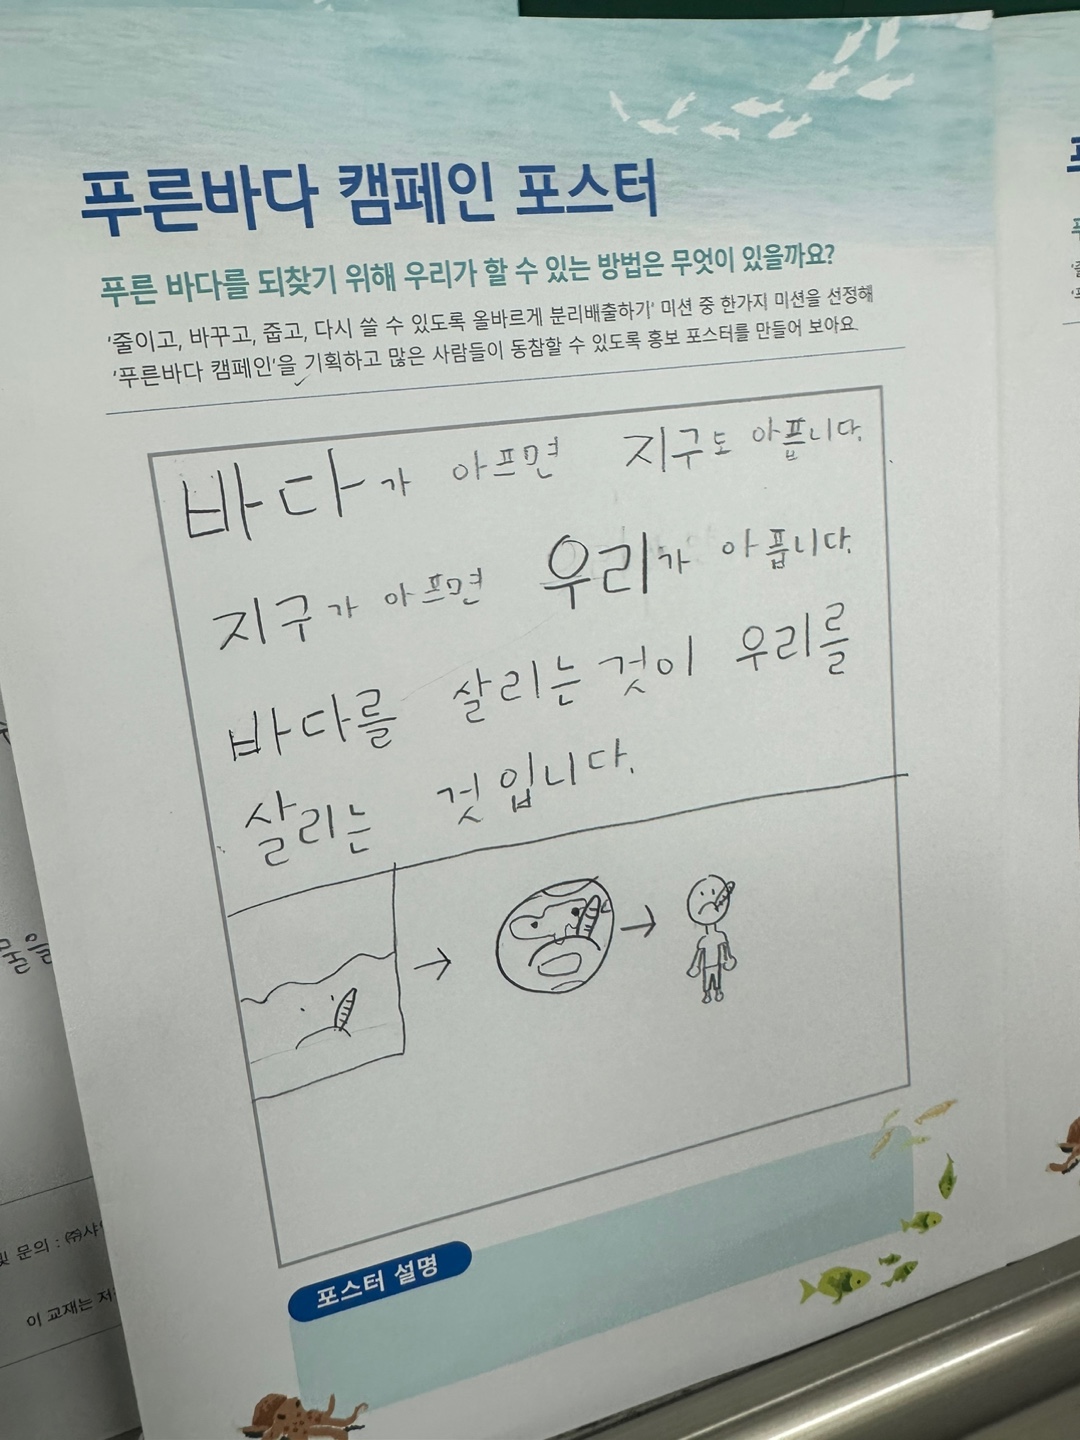 푸른바다 캠페인 포스터
푸른 바다를 되찾기 위해 우리가 할 수 있는 방법은 무엇이 있을까요?
'줄이고, 바꾸고, 줍고, 다시 쓸 수 있도록 올바르게 분리배출하기' 미션 중 한가지 미션을 선정해
'푸른바다 캠페인'을 기획하고 많은 사람들이 동참할 수 있도록 홍보 포스터를 만들어 보아요.
바다가 아프면 지구도 아픕니다.
지구가 아프면 우리가 아픕니다.
바다를 살리는 것이 우리를
살리는 것입니다.
포스터 설명
물을
및 문의 : ㈜샤
이 교재는 저